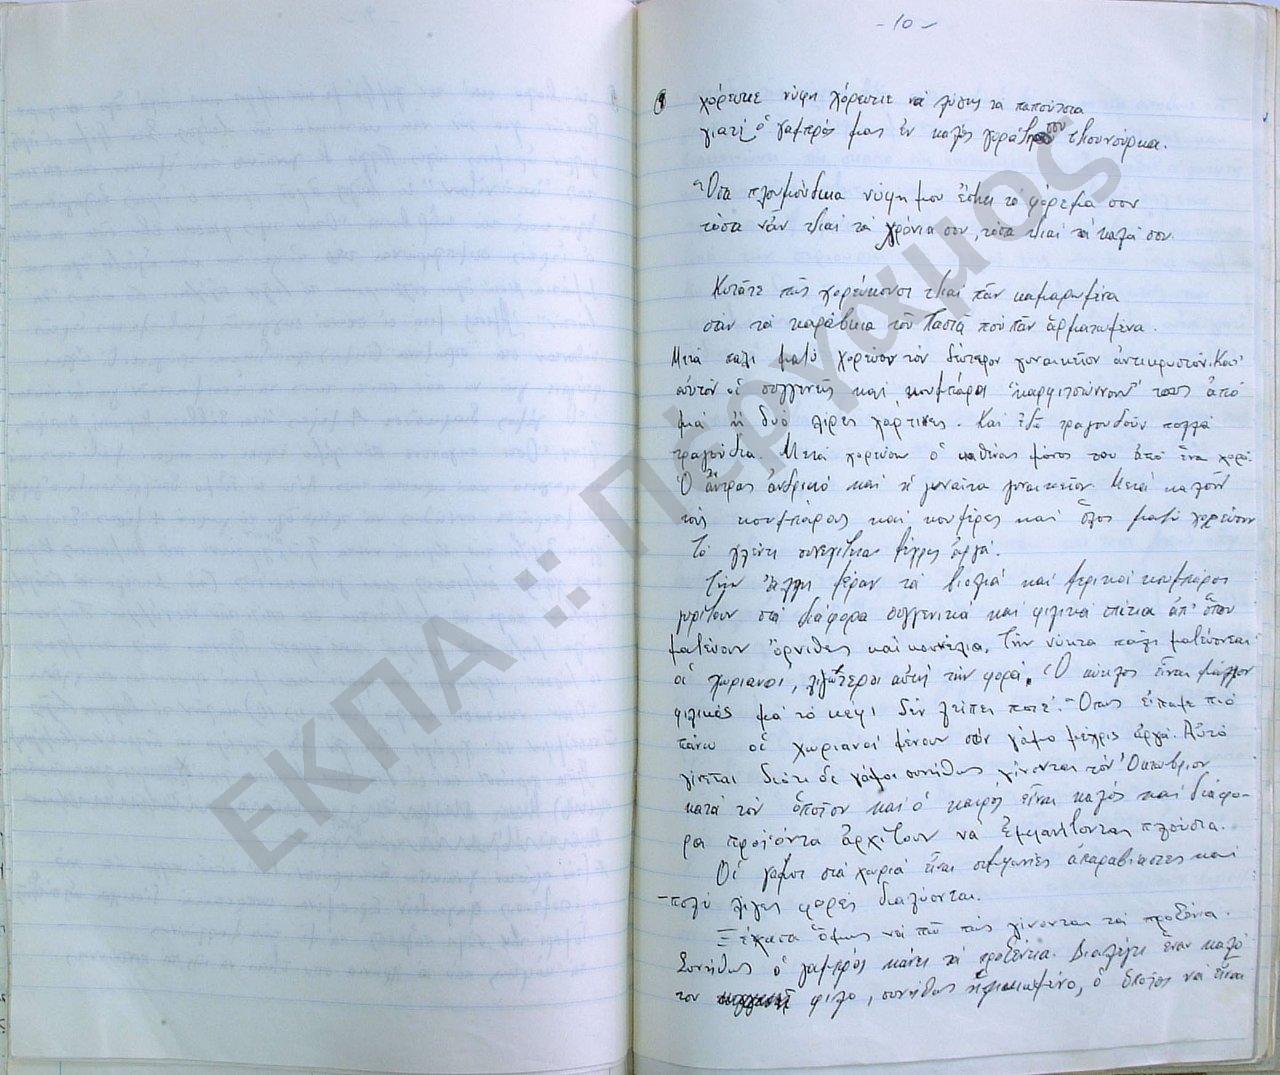 - 10 -
χόρευκε νύφη χόρευκε νά λύσης τά παπούτσια
γιατί ὁ γαμπρός μας ἐν καλός γεράβει σου τζουνούρκα.
Ὅσα πλουμούδκια νύφη μου ἔσhει τό φόρεμα σου
τόσα νἆν τζιαί τά χρόνια σου, τόσα τζιαί τά καλά σου.
Κοτᾶτε πῶς χορεύκουσι τζιαί πᾶν καμαρωμένα
σάν τά καράβκια τοῦ Πασᾶ πού πᾶν ἀρματωμένα.
Μετά πάλι μαζύ χορεύουν τόν δεύτερον γυναικεῖον ἀντικρυστόν. Κατ'
αὐτόν οἱ συγγενεῖς καί κουμπάροι "καρφιτσώννουν" τους ἀπό
μιά ἤ δυό λίρες χάρτινες. Καί ἐδῶ τραγουδοῦν πολλά
τραγούδια. Μετά χορεύουν ὁ καθένας μόνος του ἀπό ἕνα χορό.
Ὁ ἄντρας ἀνδρικό καί ἡ γυναίκα γυναικεῖον. Μετά καλοῦν
τούς κουμπάρους καί κουμέρες καί ὅλοι μαζύ χορεύουν
Τό γλέντι συνεχίζεται μέχρις ἀργά.
Τήν ἄλλη μέραν τά βιολιά καί μερικοί κουμπάροι
γυρίζουν στά διάφορα συγγενικά καί φιλικά σπίτια ἀπ' ὅπου
μαζεύουν ὄρνιθες καί κουνέλια. Τήν νύκτα πάλι μαζεύονται
οἱ χωριανοί, λιγώτεροι αὐτή τήν φορά. Ὁ κύκλος εἶναι μᾶλλον
φιλικός μά τό κέφι δέν λείπει ποτέ. Ὅπως εἴπαμε πιό
πάνω οἱ χωριανοί μένουν στόν γάμο μέχρις ἀργά. Αὐτό
γίνεται διότι οἱ γάμοι συνήθως γίνονται τόν Ὀκτώβριον
κατά τόν ὁποῖον καί ὁ καιρός εἶναι καλός καί διάφο-
ρα προϊόντα ἀρχίζουν νά ἐμφανίζονται πλούσια.
Οἱ γάμοι στά χωριά εἶναι συμφωνίες ἀπαραβίαστες καί
πολύ λίγες φορές διαλύονται.
Ξέχασα ὅμως νά πῶ πῶς γίνονται τά προξένια.
Συνήθως ὁ γαμπρός κάνει τά προξένια. Διαλέγει ἕναν καλό
του φίλο, συνήθως ἡλικιωμένο, ὁ ὁποῖος νά εἶναι
ΕΚΠΑ :: Πέργαμος